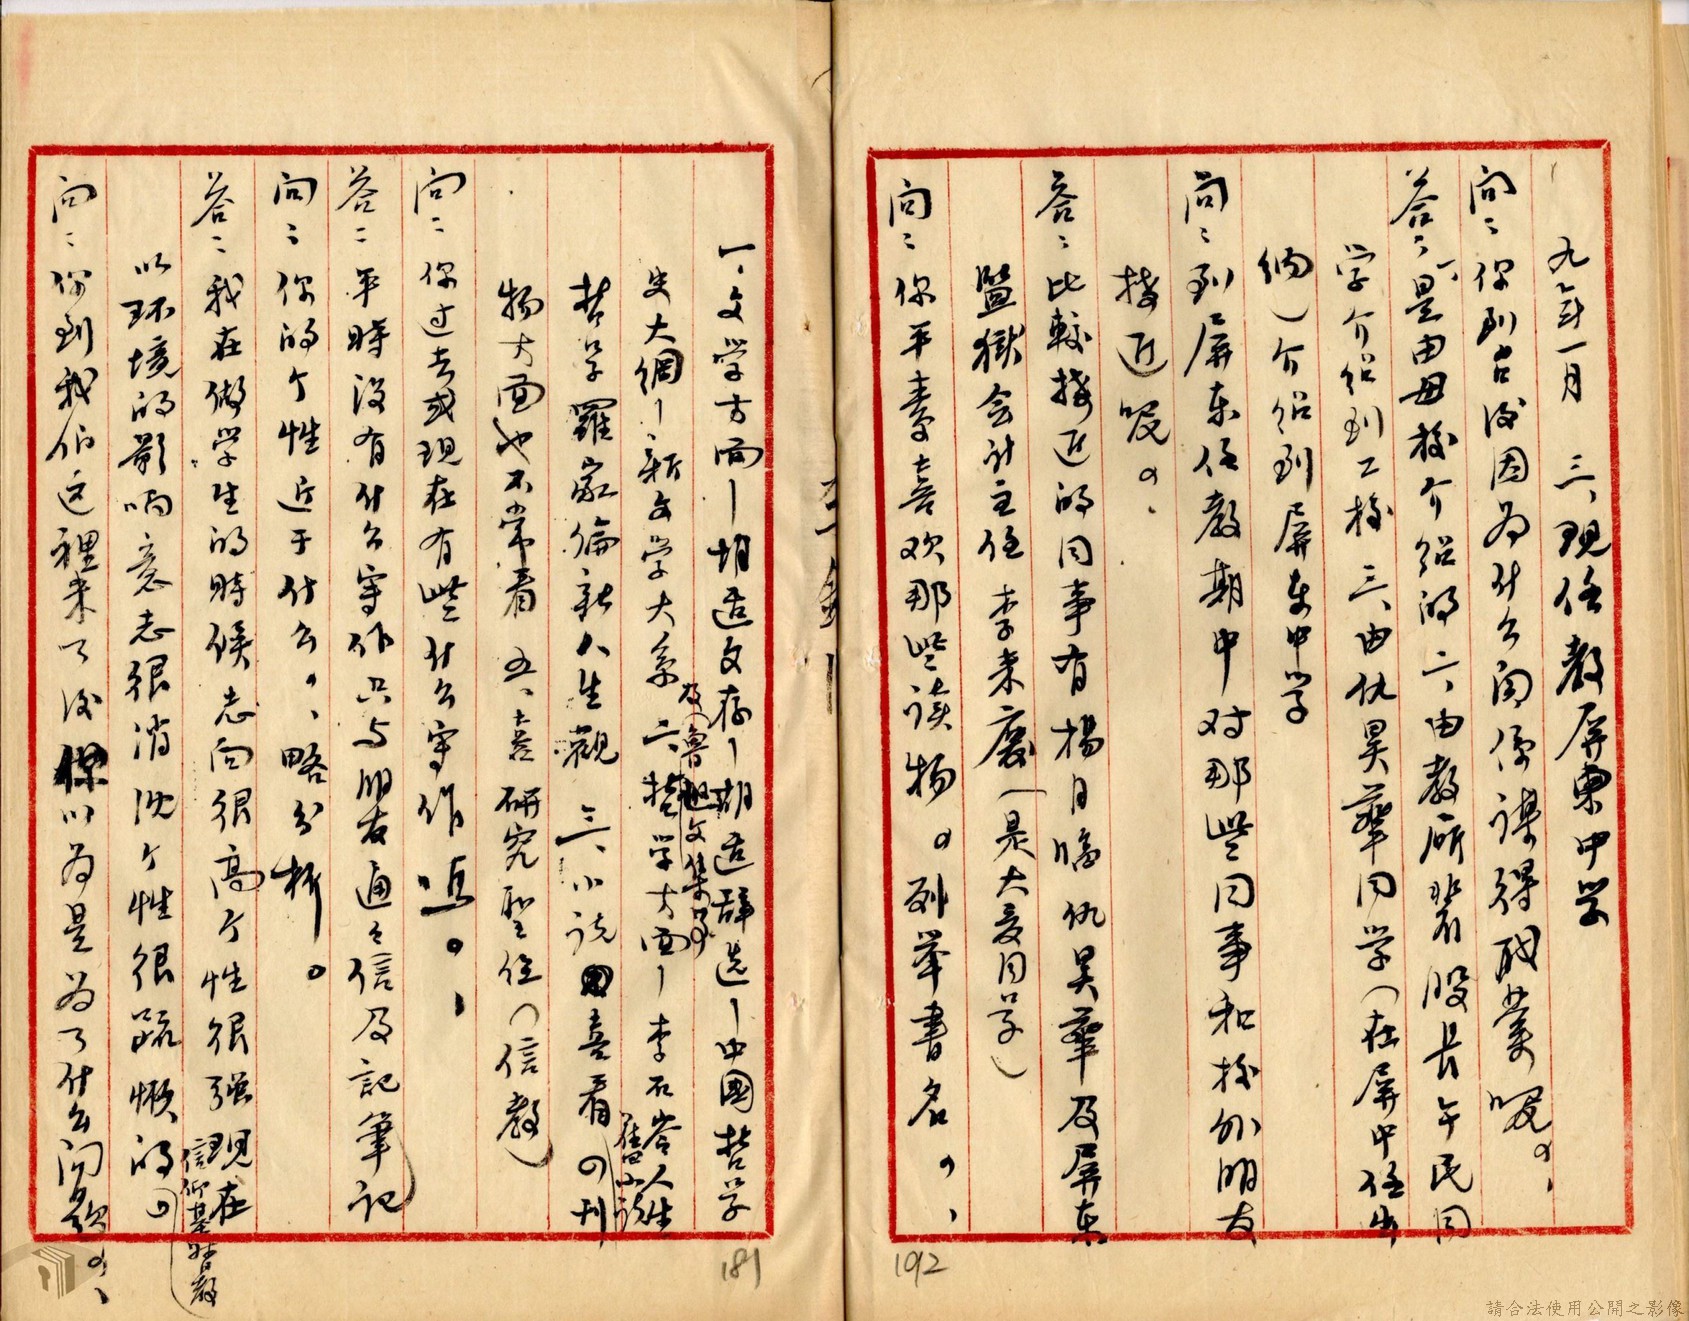 九年一月 三、現任教屏東中学
问:你到台後因为什么関係謀得职業呢?
答:一、是由母校介绍的 二、由教厛 股長午民同
学介绍到工校 三、由仇昊華同学(在屏中任出
纳)介绍到屏東中学
问:到屏東任教期中对那些同事和校外朋友
接近呢?
答:比較接近的同事有楊月 仇昊華及屏東
監獄会计主任李来慶(是大夏同学)
问:你平素喜欢那些读物?列举書名?
192
一、文学方面—胡适文存—胡适辞选—中國哲学
史大綱—新文学大系及(魯迅文集等) 二、哲学方面—李石岑人生
哲学羅家倫新人生觀 三、小说喜看(舊小说) 刊
物方面也不常看 五、喜研究聖经(信教)
问:你过去或现在有些什么写作 ?
答:平時没有什么写作只与朋友通々信及記筆记
问:你的个性近于什么?略分析。
答:我在做学生的時候志向很高个性很强 现在
信仰基督教
以环境的影响意志很消沈个性很疏懒的
问:你到我们这裡来了後 以为是为了什么问题?
181
請合法使用公開之影像